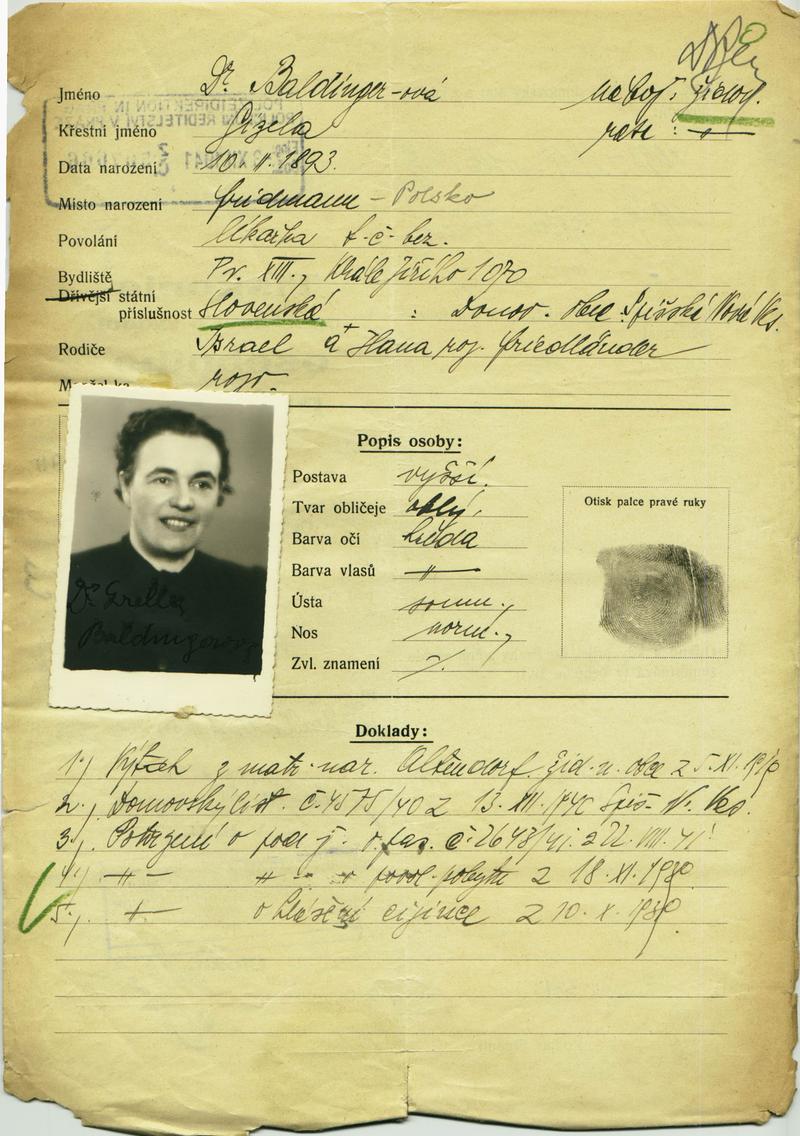 Jméno Dr Baldinger-ová nábož: židov.
Křestní jméno Gizela rasa: –〃–
Datum narození 10. II. 1893.
Místo narození Fridmann – Polsko
Povolání lékařka t. č. bez.
Bydliště Pr. XIII., Krále Jiřího 1070
Dřívější státní
příslušnost Slovenská : Domov. obec Spišská Nová Ves.
Rodiče Israel a Hana roz. Friedländer
rozv.
Popis osoby:
Postava vyšší.
Tvar obličeje oblý,
Barva očí hnědá
Barva vlasů –〃–
Ústa norm.,
Nos norm.,
Zvl. znamení ./.
Otisk palce pravé ruky
Dr Grella
Baldingerova
Doklady:
1.) Výtah z matr. nar. Altendorf. žid. n. obce z 5. XI.
2.) Domovský list. č. 4575/40 z 13. XII. 1940 Spiš. N. Ves.
3.) Potvrzení o pod. ž. o pas. č. 2648/41. z 22. VIII. 41.
4.) –〃– 〃 – o povol. pobytu z 18. XI. 1940
5.) –〃– o hlášení cizince z 10. X. 1940